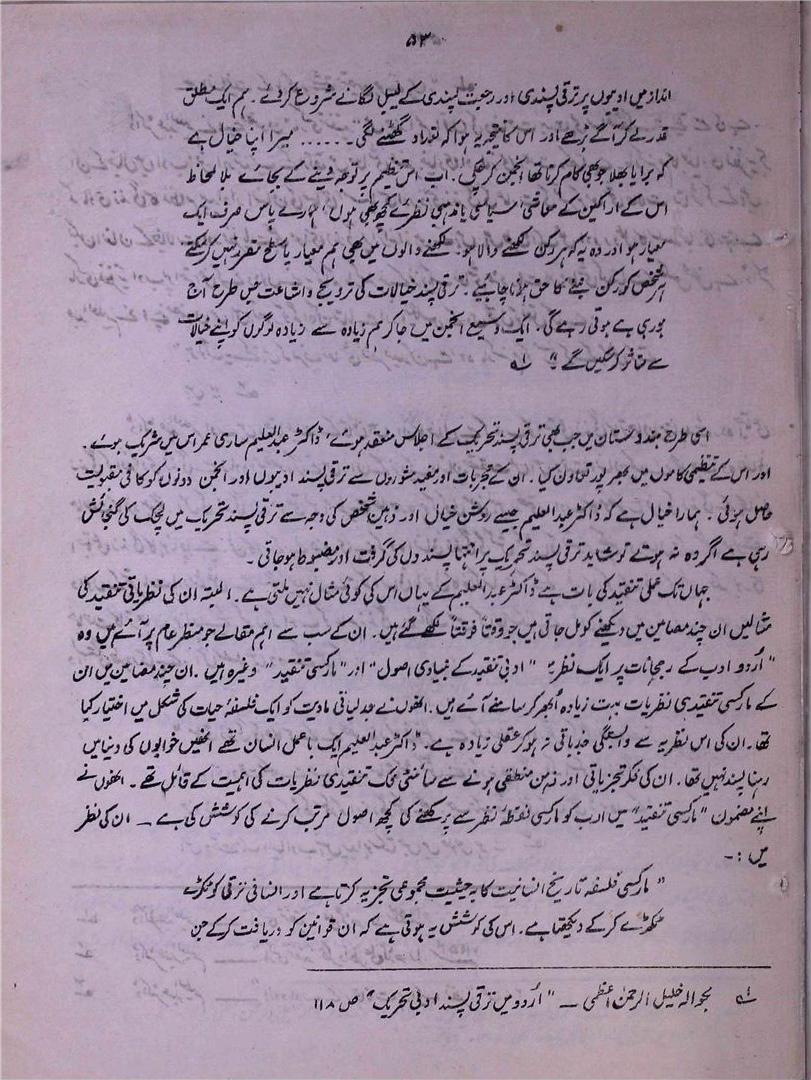 ۵۳
انداز میں ادیبوں پر ترقی پسندی اور رجعت پسندی کے لیبل لگانے شروع کر دئے۔ ہم ایک مطلق
قدر لے کر آگے بڑھے اور اس کا نتیجہ یہ ہوا کہ تعداد گھٹنے لگی۔ ۔۔۔۔۔ میرا اپنا خیال ہے
کہ برا یا بھلا جو بھی کام کرنا تھا انجمن کر چکی۔ اب اس تنظیم پر توجہ دینے کے بجائے بلا لحاظ
اس کے اراکین کے معاشی سیاسی یا مذہبی نظرئے کچھ بھی ہوں، ہمارے پاس صرف ایک
معیار ہو اور وہ یہ کہ ہر رکن لکھنے والا ہو۔ لکھنے والوں میں بھی ہم معیار یا سطح مقرر نہیں کر سکتے
ہر شخص کو رکن بننے کا حق ہونا چاہیئے۔ ترقی پسند خیالات کی ترویج و اشاعت جس طرح آج
ہو رہی ہے ہوتی رہے گی۔ ایک وسیع انجمن میں جا کر ہم زیادہ سے زیادہ لوگوں کو اپنے خیالات
سے متاثر کر سکیں گے" ۱ے
اسی طرح ہندوستان میں جب بھی ترقی پسند تحریک کے اجلاس منعقد ہوئے، ڈاکٹر عبدالعلیم ساری عمر اس میں شریک ہوئے۔
اور اس کے تنظیمی کاموں میں بھرپور تعاون کیا۔ ان کے تجربات اور مفید مشوروں سے ترقی پسند ادیبوں اور انجمن دونوں کو کافی مقبولیت
حاصل ہوئی۔ ہمارا خیال ہے کہ ڈاکٹر عبدالعلیم جیسے روشن خیال اور ذہین شخص کی وجہ سے ترقی پسند تحریک میں لچک کی گنجائش
رہی ہے اگر وہ نہ ہوتے تو شاید ترقی پسند تحریک پر انتہا پسندوں کی گرفت اور مضبوط ہو جاتی۔
جہاں تک عملی تنقید کی بات ہے ڈاکٹر عبدالعلیم کے یہاں اس کی کوئی مثال نہیں ملتی ہے۔ البتہ ان کی نظریاتی تنقید کی
مثالیں ان چند مضامین میں دیکھنے کو مل جاتی ہیں جو وقتاً فوقتاً لکھے گئے ہیں۔ ان کے سب سے اہم مقالے جو منظر عام پر آئے ہیں وہ
"اردو ادب کے رجحانات پر ایک نظر" "ادبی تنقید کے بنیادی اصول" اور "مارکسی تنقید" وغیرہ ہیں۔ ان چند مضامین میں ان
کے مارکسی تنقیدی نظریات بہت زیادہ ابھر کر سامنے آئے ہیں۔ انھوں نے جدلیاتی مادیت کو ایک فلسفۂ حیات کی شکل میں اختیار کیا
تھا۔ ان کی اس نظریہ سے وابستگی جذباتی نہ ہو کر عقلی زیادہ ہے۔ ڈاکٹر عبدالعلیم ایک با عمل انسان تھے انھیں خوابوں کی دنیا میں
رہنا پسند نہیں تھا۔ ان کی فکر تجزیاتی اور ذہن منطقی ہونے سے سائنٹی فک تنقیدی نظریات کی اہمیت کے قائل تھے۔ انھوں نے
اپنے مضمون "مارکسی تنقید" میں ادب کو مارکسی نقطۂ نظر سے پرکھنے کی کچھ اصول مرتب کرنے کی کوشش کی ہے ۔ ان کی نظر
میں :۔
"مارکسی فلسفہ تاریخ انسانیت کا بہ حیثیت مجموعی تجزیہ کرتا ہے اور انسانی ترقی کو ٹکڑے
ٹکڑے کر کے دیکھتا ہے۔ اس کی کوشش یہ ہوتی ہے کہ ان قوانین کو دریافت کر کے جن
۱ے بحوالہ خلیل الرحمٰن اعظمی ۔ "اردو میں ترقی پسند ادبی تحریک" ص ۱۱۸